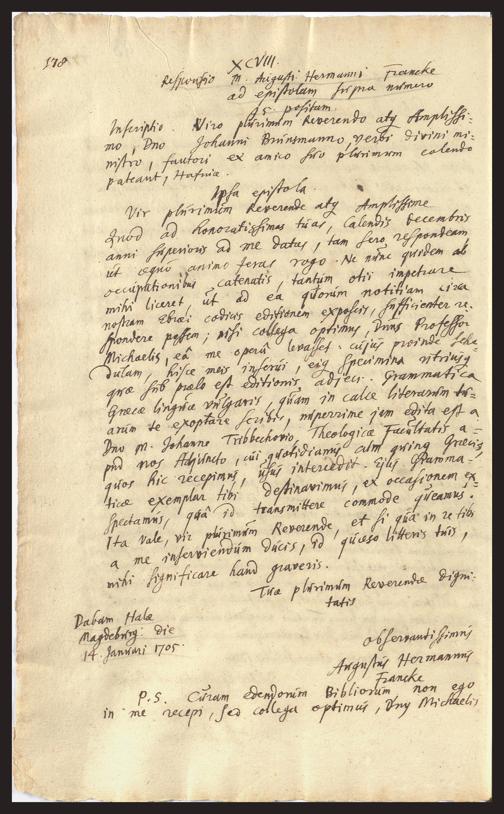 178
XCVIII.
Responsio M. Augusti Hermanni Francke
ad epistolam supra numero
95 positam.
Inscriptio. Viro plurimum Reverendo atq Amplissi-
mo, Dno Johanni Brunsmanno, verbi divini mi-
nistro, fautori ex amico suo plurimum colendo
pateant, Hafniæ.
Ipsa epistola.
Vir plurimum Reverende atq Amplissime
Quod ad honoratissimas tuas, Calendis Decembris
anni superioris ad me datas, tam sero respondeam
ut æquo animo feras rogo. Ne nunc quidem ab
occupationibus catenatis, tantum otii impetrare
mihi liceret, ut ad ea quorum notitiam circa
nostram Ebræi codicis editionem exposcis, sufficienter re-
spondere possem; nisi collega optimus, Dnus Professor
Michaelis, ea me opera levasset. cujus proinde sche-
dulam, hisce meis inserui, ejq specimina utriusq
quæ sub prælo est editionis, adjeci. Grammatica
Græcæ linguæ vulgaris, quam in calce literarum tu-
arum te exoptare scribis, nuperrime jam edita est a
Dno M. Johanne Tribbechovio, Theologicæ Facultatis a-
pud nos Adjuncto, cui quotidianus cum quinq Græcis
quos hic recepimus, usus intercedit. Ejus Gramma-
ticæ exemplar tibi destinavimus, et occasionem ex-
spectamus, qua id transmittere commode queamus.
Ita vale, vir plurimum Reverende, et si qua in re tibi
a me inserviendum ducis, id quæso litteris tuis,
mihi significare haud graveris.
Tuæ plurimum Reverendæ digni-
tatis
Dabam Halæ
Magdeburg: die
14. Januari 1705.
observantissimus
Augustus Hermannus
Francke
P.S. Curam edendorum Bibliorum non ego
in me recepi, sed collega optimus, Dnq Michaelis